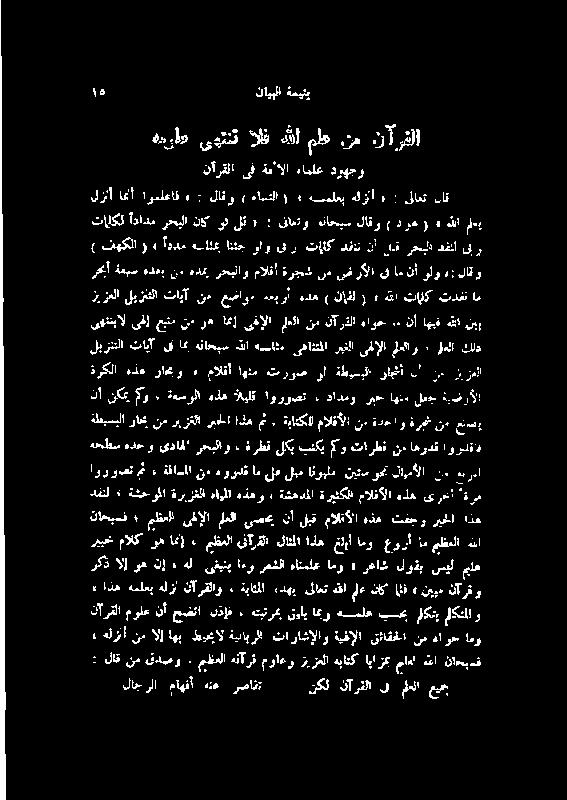 يتيمة البيان ١٥
القرآن من علم الله فلا تنتهى علومه
وجهود علماء الأمة فى القرآن
قال تعالى : « أنزله بعلمه » ( النساء ) وقال : « فاعلموا أنما أنزل
بعلم الله » ( هود ) وقال سبحانه وتعالى : « قل لو كان البحر مداداً لكلمات
ربى لنفد البحر قبل أن تنفد كلمات ربى ولو جئنا بمثله مدداً » ( الكهف )
وقال : « ولو أن ما فى الأرض من شجرة أقلام والبحر يمده من بعده سبعة أبحر
ما نفدت كلمات الله » ( لقمان ) هذه أربعة مواضع من آيات التنزيل العزيز
بين الله فيها أن .. حواه القرآن من العلم الإلهى إنما هو من منبع إلهى لاينتهى
ذلك العلم ، والعلم الإلهى الغير المتناهى مثله الله سبحانه بما فى آيات التنزيل
العزيز من أن أشجار البسيطة لو صورت منها أقلام ، وبحار هذه الكرة
الأرضية جعل منها حبر ومداد ، تصوروا قليلاً هذه الوسعة ، وكم يمكن أن
يصنع من شجرة واحدة من الأقلام للكتابة ، ثم هذا الحبر الغزير من بحار البسيطة
فاقدروا قدرها من قطرات وكم يكتب بكل قطرة ، والبحر الهادى وحده سطحه
أربع من الأميال نحو ستين مليوناً ميل على ما قدروه من المسافة ، ثم تصوروا
مرة أخرى هذه الأقلام الكثيرة المدهشة ، وهذه المياه الغزيرة الموحشة ، لنفد
هذا الحبر وجفت هذه الأقلام قبل أن يحصى العلم الإلهى العظيم ، فسبحان
الله العظيم ما أروع وما أبلغ هذا المثال القرآنى العظيم ، إنما هو كلام خبير
عليم ليس بقول شاعر « وما علمناه الشعر وما ينبغى له » إن هو إلا ذكر
وقرآن مبين » فلما كان علم الله تعالى بهذه المثابة ، والقرآن أنزله بعلمه هذا ،
والمتكلم يتكلم بحسب علمه وبما يليق بمرتبته ، فإذن اتضح أن علوم القرآن
وما حواه من الحقائق الإلهية والإشارات الربانية لايحيط بها إلا من أنزله ،
فسبحان الله العليم بمزايا كتابه العزيز وعلوم قرآنه العظيم . وصدق من قال :
جميع العلم فى القرآن لكن تقاصر عنه أفهام الرجال